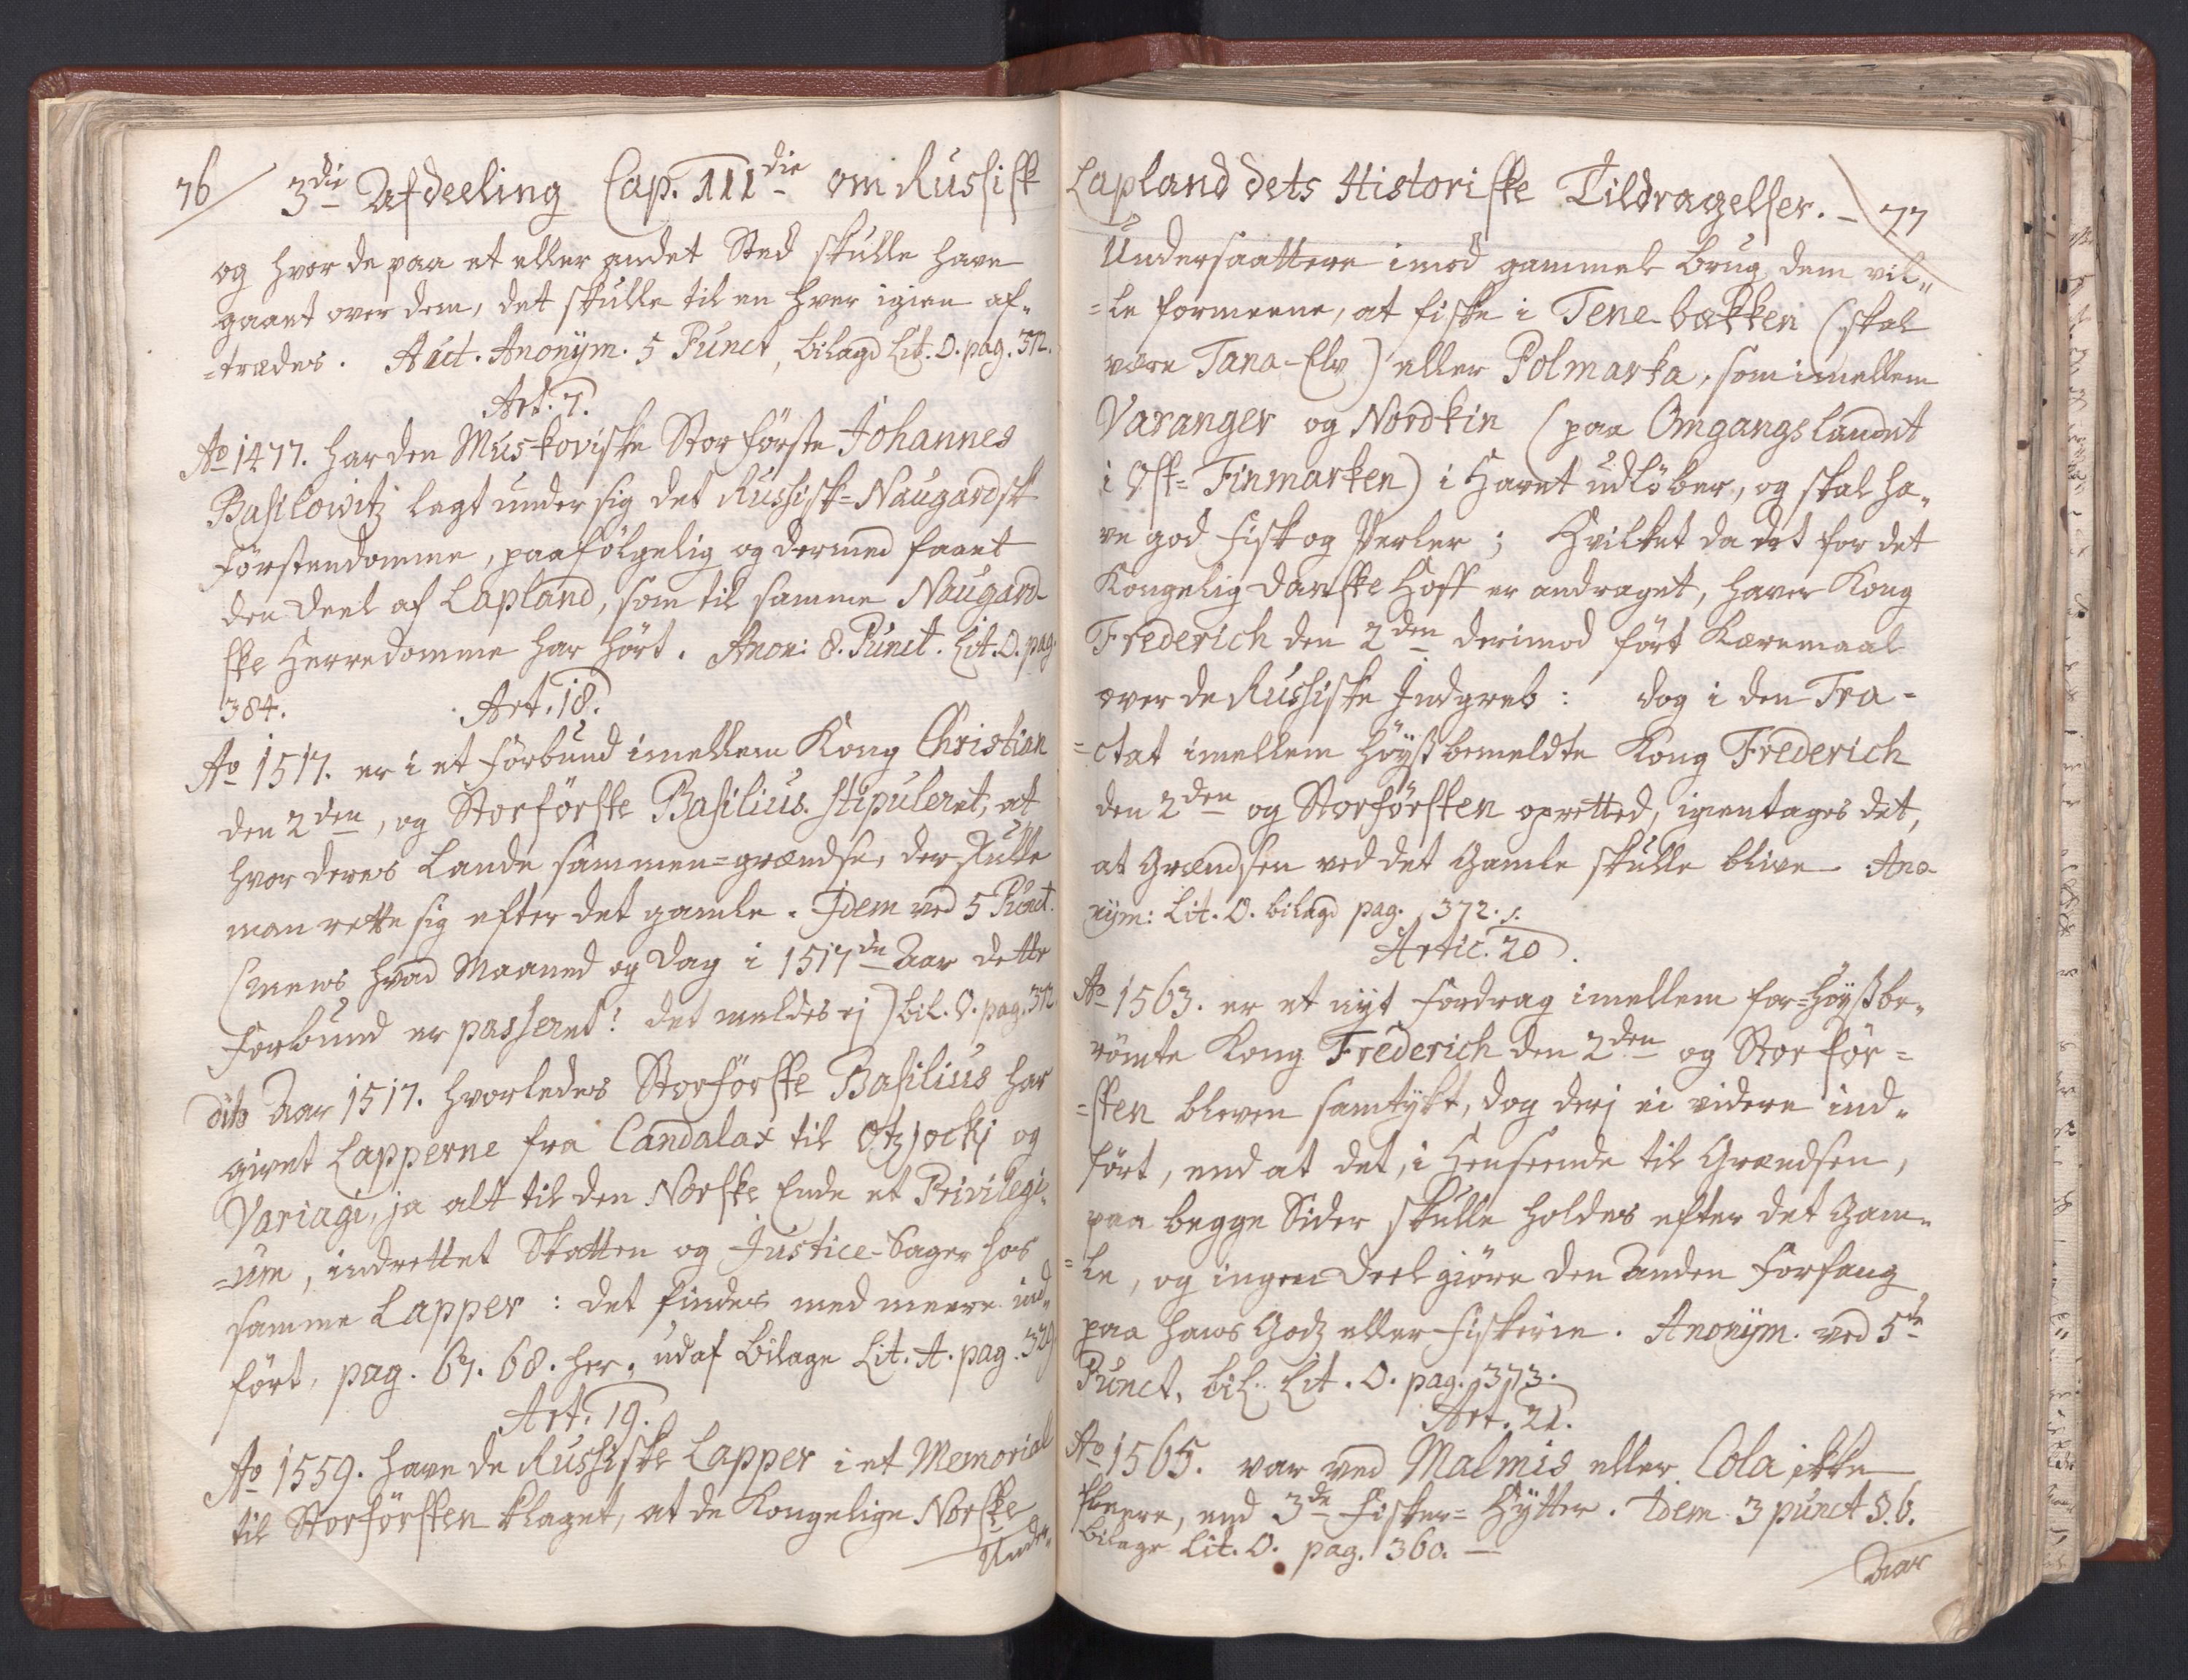 76/ 3die Afdeeling Cap. IIIdie om Russisk
og hvor de paa et eller andet Sted skulle have
gaaet over dem, det skulle til en hver igien af„
=trædes. Auct. Anonÿm. 5 Punct, bilagd Lit. O. pag. 372.
Art. 7.
Ao 1477. har den Muskoviske Stor förste Johannes
Basilowitz lagt under sig det Russisk=Naugardsk
Förstendomme, paafölgelig og dermed faaet
den Deel af Lapland, som til samme Naugard-
ske Herredomme har hört. Anon: 8. Punct. Lit. O. pag.
384.
Art. 18.
Ao 1517. er i et Forbund imellem Kong Christian
den 2den, og Storförste Basilius stipuleret, at
hvor deres Lande sammen=grændse, der skulle
man rette sig efter det gamle. Idem ved 5 Punct.
(mens hvad Maaned og Dag i 1517de Aar dette
Forbund er passeret! det meldes ej) bil. O. pag. 372
dito Aar 1517. hvorledes Storförste Basilius har
givet Lapperne fra Candalax til Otzjockj og
Variagi, ja alt til den Norske Ende et Privilegi„
=um, indrettet Skatten og Justice-Sager hos
samme Lapper: det findes med meere ind„
fört, pag. 67. 68. her, udaf Bilage Lit. A. pag. 329
Art. 19.
Ao 1559. have de Russiske Lapper i et Memorial
til Storförsten klaget, at de Kongelige Norske
Under„
Lapland dets Historiske Tildragelser. - 77
Undersaattere imod gammel brug dem vil„
=le formeene, at fiske i Tene-bækken (skal
være Tana-Elv) eller Polmarka, som imellem
Varanger og Nordkin (paa Omgangslandet
i Ost=Finmarken) i Havet udlöber, og skal ha„
ve god Fisk og Perler; Hvilket da det for det
Kongelig Danske Hoff er andraget, haver Kong
Frederich den 2den derimod fört Kæremaal
over de Russiske Indgreb: dog i den Tra=
=ctat imellem Höyst bemeldte Kong Frederich
den 2den og Storförsten oprettet, igientages det,
at Grændsen ved det Gamle skulle blive. Ano
nÿm: Lit. O. bilagd pag. 372. /.
Artic. 20.
Ao 1563. er et nÿt Fordrag imellem for=Höystbe„
römte Kong Frederich den 2den og Stor för=
=sten bleven samtÿkt, dog derj ei videre ind„
fört, end at det, i Henseende til Grændsen,
paa begge Sider skulle holdes efter det Gam„
=le, og ingen Deel giöre den Anden Forfang
paa hans Godz eller Fiskerie. Anonÿm. ved 5te
Punct, bil. Lit. O. pag. 373.
Art. 21.
Ao 1565. var ved Malmis eller Cola ikke
fleere, end 3de Fisker=Hÿtter. Idem 3 punct S. 6.
bilage Lit. O. pag. 360. —
Aar